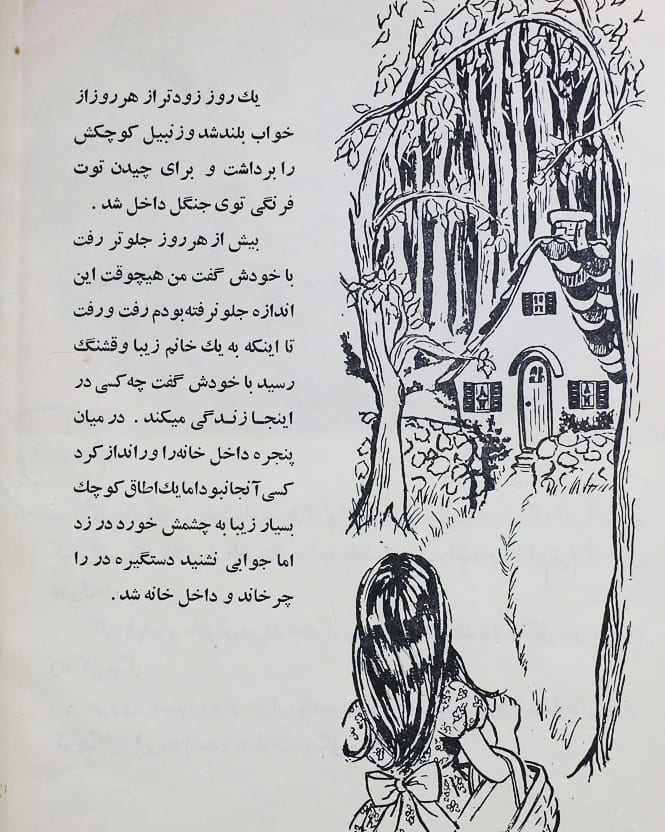 یك روز زودتر از هر روز از
خواب بلند شد و زنبیل کوچکش
را برداشت و برای چیدن توت
فرنگی توی جنگل داخل شد .
بیش از هر روز جلوتر رفت
با خودش گفت من هیچوقت این
اندازه جلو نرفته بودم رفت و رفت
تا اینکه به یك خانم زیبا وقشنگ
رسید با خودش گفت چه کسی در
اینجا زندگی میکند . در میان
پنجره داخل خانه را ورانداز کرد
کسی آنجا نبود اما یك اطاق کوچك
بسیار زیبا به چشمش خورد در زد
اما جوابی نشنید دستگیره در را
چرخاند و داخل خانه شد .